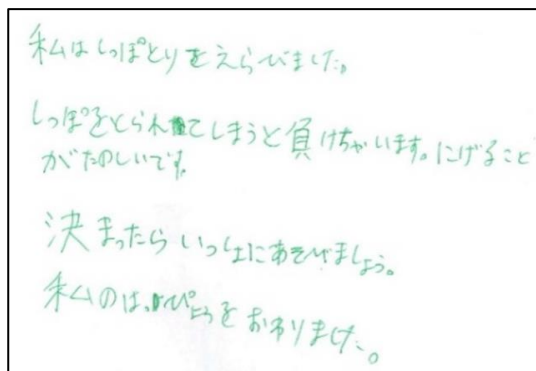 私はしっぽとりをえらびました。
しっぽをとられてしまうと負けちゃいます。にげること
がたのしいです。
決まったらいっしょにあそびましょう。
私のは、ぴょうをおわりました。